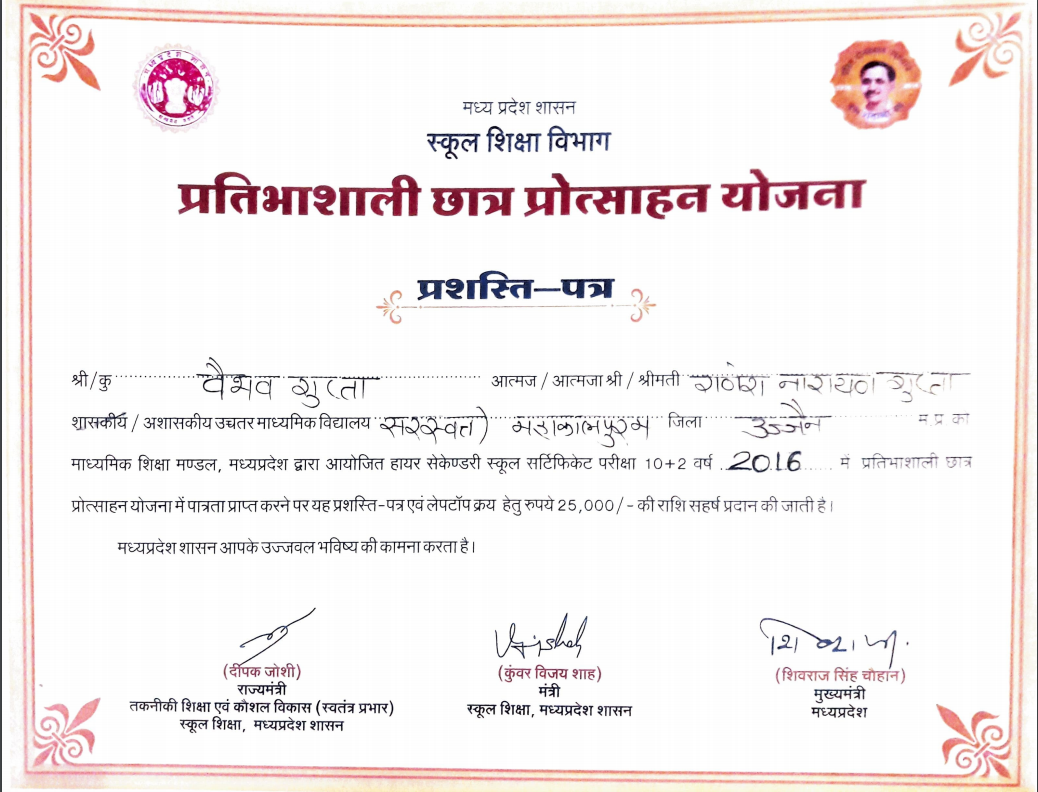 मध्य प्रदेश शासन
स्कूल शिक्षा विभाग
प्रतिभाशाली छात्र प्रोत्साहन योजना
प्रशस्ति–पत्र
श्री/कु वैभव गुप्ता आत्मज / आत्मजा श्री / श्रीमती गणेश नारायण गुप्ता
शासकीय / अशासकीय उच्चतर माध्यमिक विद्यालय सरस्वती महाकालपुरम जिला उज्जैन म.प्र. का
माध्यमिक शिक्षा मण्डल, मध्यप्रदेश द्वारा आयोजित हायर सेकेण्डरी स्कूल सर्टिफिकेट परीक्षा 10+2 वर्ष 2016 में प्रतिभाशाली छात्र
प्रोत्साहन योजना में पात्रता प्राप्त करने पर यह प्रशस्ति-पत्र एवं लेपटॉप क्रय हेतु रुपये 25,000/- की राशि सहर्ष प्रदान की जाती है।
मध्यप्रदेश शासन आपके उज्जवल भविष्य की कामना करता है।
(दीपक जोशी)
राज्यमंत्री
तकनीकी शिक्षा एवं कौशल विकास (स्वतंत्र प्रभार)
स्कूल शिक्षा, मध्यप्रदेश शासन
(कुंवर विजय शाह)
मंत्री
स्कूल शिक्षा, मध्यप्रदेश शासन
(शिवराज सिंह चौहान)
मुख्यमंत्री
मध्यप्रदेश